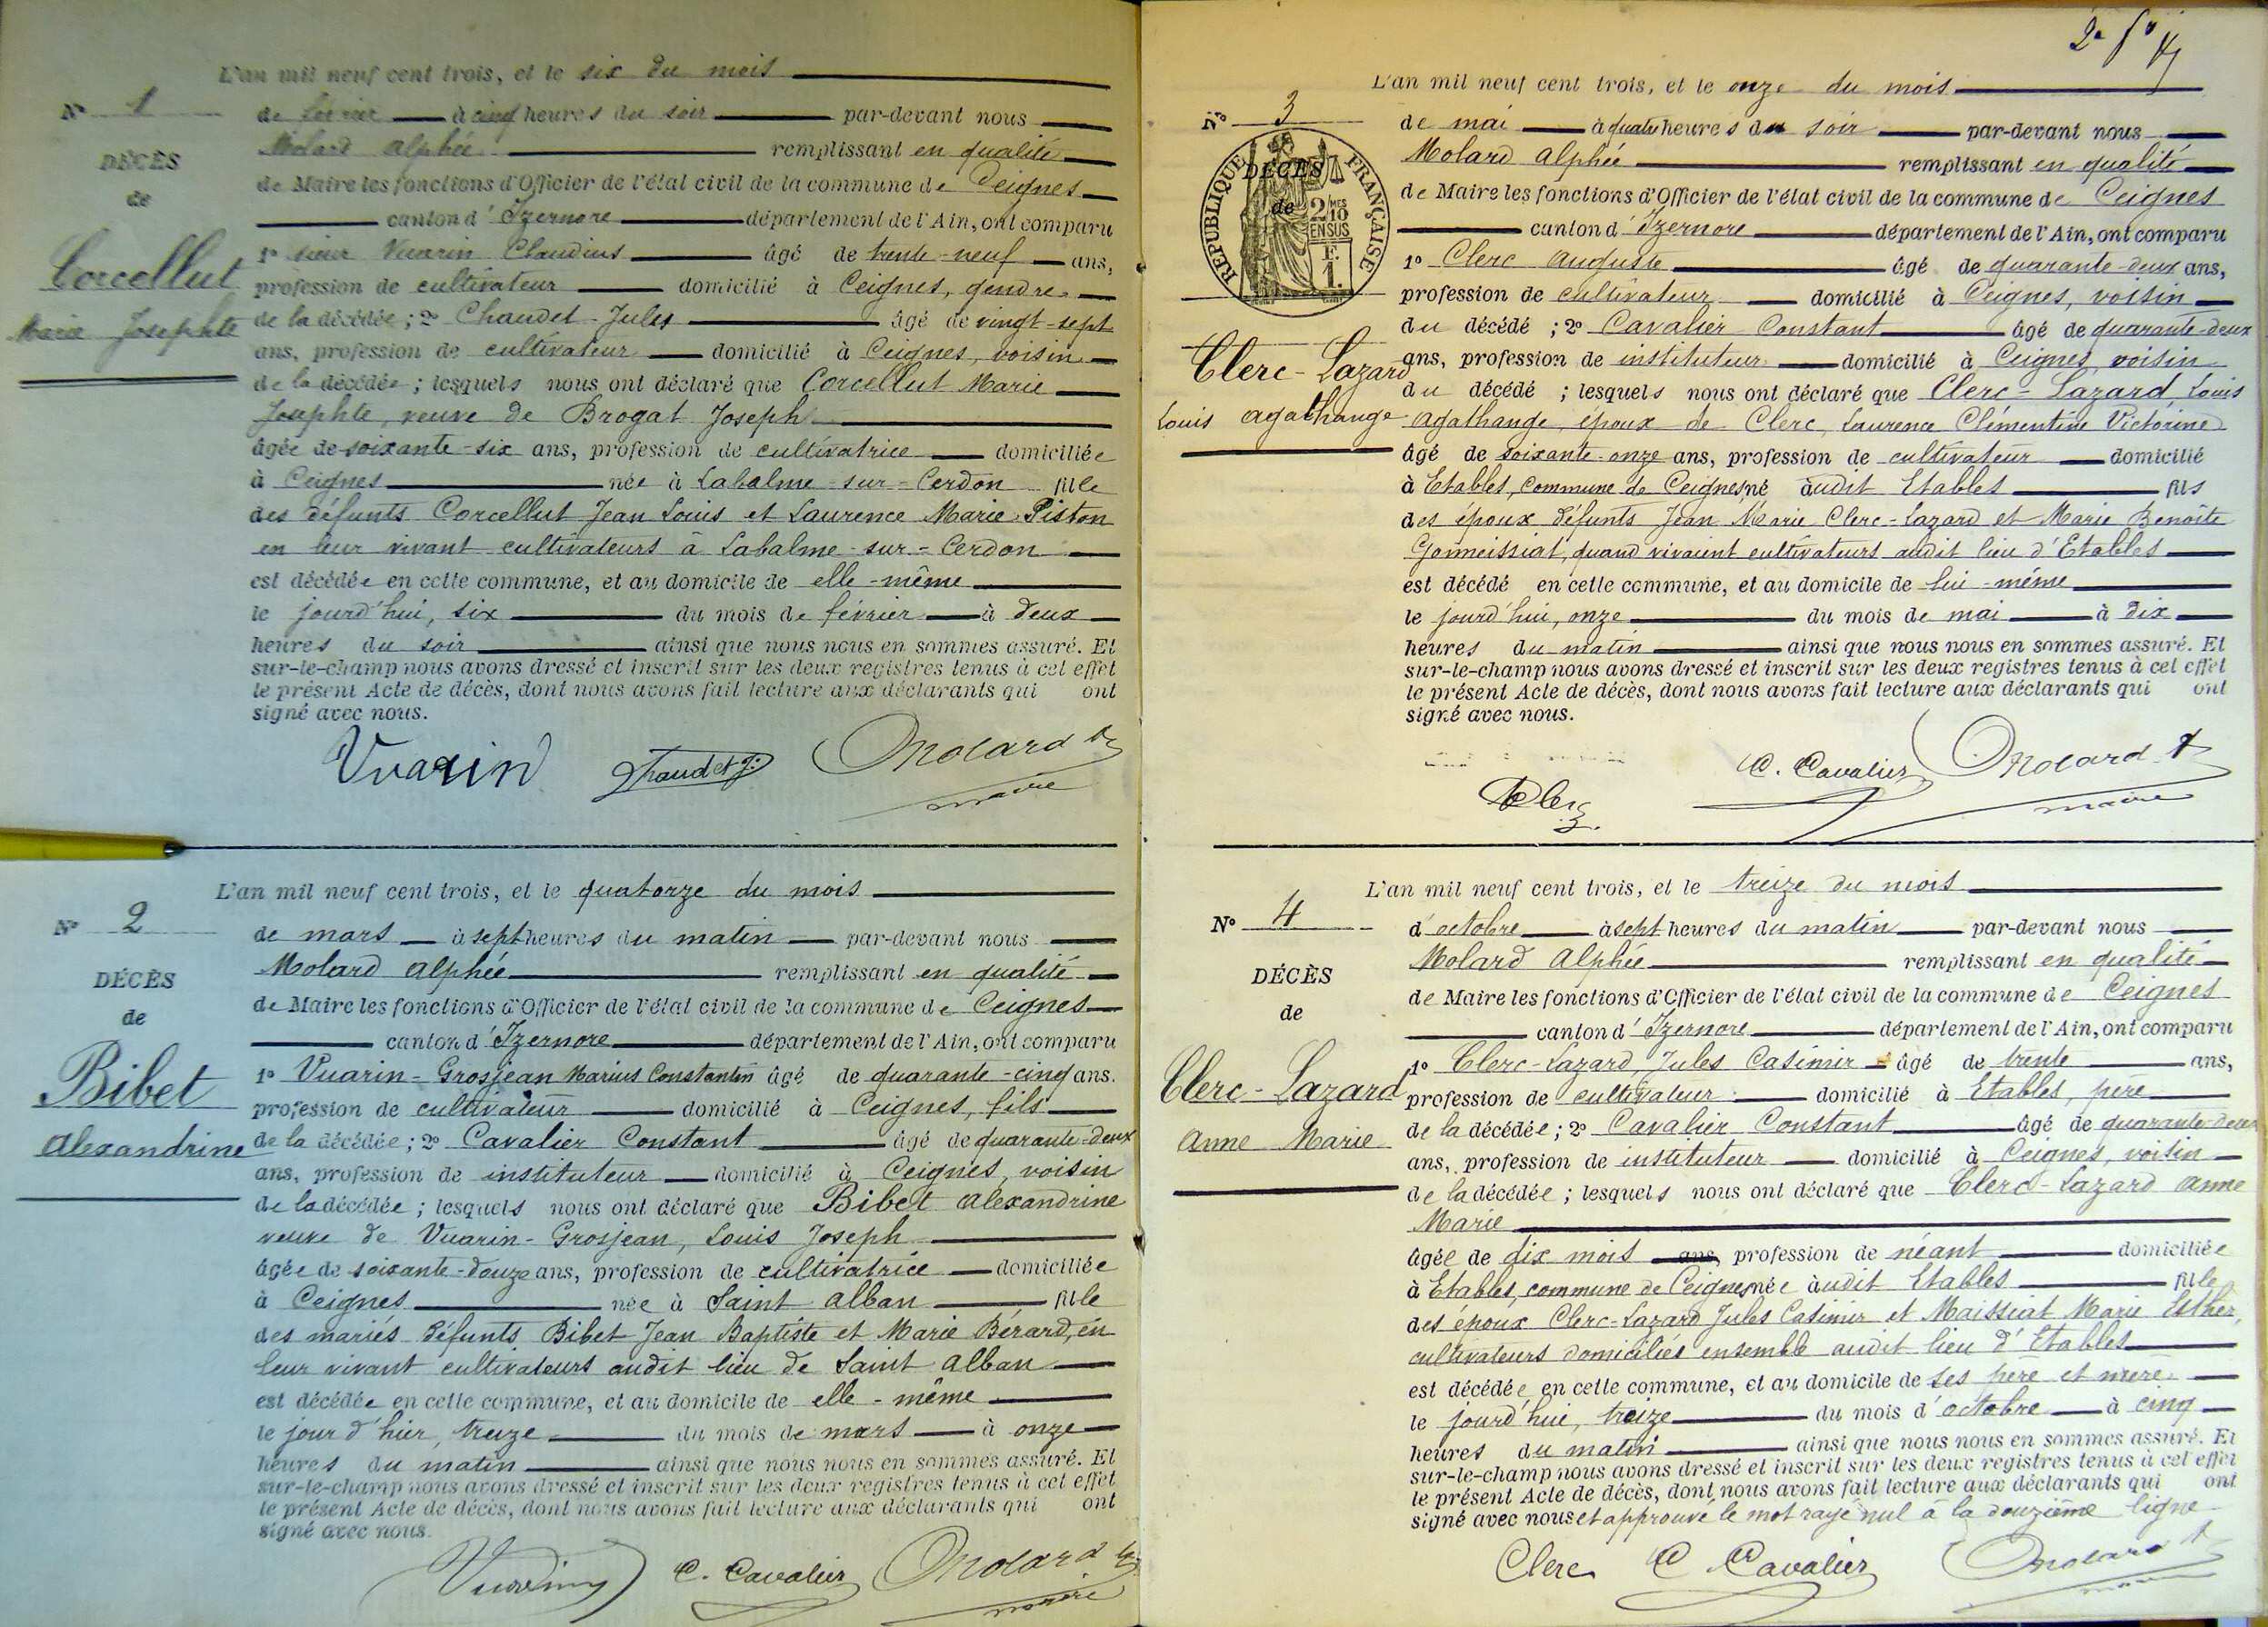 L'an mil neuf cent trois, et le six du mois
N° 1
de février à cinq heures du soir par-devant nous
Molard Alphée remplissant en qualité
DÉCÈS
de Maire les fonctions d'Officier de l'état civil de la commune de Ceignes
de
canton d'Izernore département de l'Ain, ont comparu
1° sieur Vuarin Claudius âgé de trente-neuf ans,
Corcellut
profession de cultivateur domicilié à Ceignes, gendre
Marie Josephte
de la décédée ; 2° Chaudet Jules âgé de vingt-sept
ans, profession de cultivateur domicilié à Ceignes, voisin
de la décédée ; lesquels nous ont déclaré que Corcellut Marie
Josephte, veuve de Brogat Joseph
âgée de soixante-six ans, profession de cultivatrice domiciliée
à Ceignes née à Labalme-sur-Cerdon fille
des défunts Corcellut Jean Louis et Laurence Marie Piston
en leur vivant cultivateurs à Labalme-sur-Cerdon
est décédée en cette commune, et au domicile de elle-même
le jourd'hui, six du mois de février à deux
heures du soir ainsi que nous nous en sommes assuré. Et
sur-le-champ nous avons dressé et inscrit sur les deux registres tenus à cet effet
le présent Acte de décès, dont nous avons fait lecture aux déclarants qui ont
signé avec nous.
Vuarin Chaudet J. Molard A
maire
L'an mil neuf cent trois, et le quatorze du mois
N° 2
de mars à sept heures du matin par-devant nous
Molard Alphée remplissant en qualité
DÉCÈS
de Maire les fonctions d'Officier de l'état civil de la commune de Ceignes
de
canton d'Izernore département de l'Ain, ont comparu
1° Vuarin-Grosjean Marius Constantin âgé de quarante-cinq ans.
Bibet
profession de cultivateur domicilié à Ceignes, fils
Alexandrine
de la décédée ; 2° Cavalier Constant âgé de quarante-deux
ans, profession de instituteur domicilié à Ceignes, voisin
de la décédée ; lesquels nous ont déclaré que Bibet Alexandrine
veuve de Vuarin-Grosjean, Louis Joseph
âgée de soixante-douze ans, profession de cultivatrice domiciliée
à Ceignes née à Saint Alban fille
des mariés défunts Bibet Jean Baptiste et Marie Bérard, en
leur vivant cultivateurs audit lieu de Saint Alban
est décédée en cette commune, et au domicile de elle-même
le jour d'hier, treize du mois de mars à onze
heures du matin ainsi que nous nous en sommes assuré. Et
sur-le-champ nous avons dressé et inscrit sur les deux registres tenus à cet effet
le présent Acte de décès, dont nous avons fait lecture aux déclarants qui ont
signé avec nous.
Vuarin C. Cavalier Molard A
maire
L'an mil neuf cent trois, et le onze du mois
N° 3
de mai à quatre heures du soir par-devant nous
Molard Alphée remplissant en qualité
DÉCÈS
de
RÉPUBLIQUE FRANÇAISE
2 MES
10
EN SUS
F.
1.
de Maire les fonctions d'Officier de l'état civil de la commune de Ceignes
canton d'Izernore département de l'Ain, ont comparu
1° Clerc Auguste âgé de quarante-deux ans,
profession de cultivateur domicilié à Ceignes, voisin
du décédé ; 2° Cavalier Constant âgé de quarante-deux
Clerc-Lazard
ans, profession de instituteur domicilié à Ceignes, voisin
du décédé ; lesquels nous ont déclaré que Clerc-Lazard, Louis
Louis Agathange
Agathange, époux de Clerc, Laurence Clémentine Victorine
âgé de soixante-onze ans, profession de cultivateur domicilié
à Etables, commune de Ceignes né audit Etables fils
des époux défunts Jean Marie Clerc-Lazard et Marie Benoîte
Gonneissiat, quand vivaient cultivateurs audit lieu d'Etables
est décédé en cette commune, et au domicile de lui-même
le jourd'hui, onze du mois de mai à dix
heures du matin ainsi que nous nous en sommes assuré. Et
sur-le-champ nous avons dressé et inscrit sur les deux registres tenus à cet effet
le présent Acte de décès, dont nous avons fait lecture aux déclarants qui ont
signé avec nous.
Clerc C. Cavalier Molard A
maire
L'an mil neuf cent trois, et le treize du mois
N° 4
d'octobre à sept heures du matin par-devant nous
Molard Alphée remplissant en qualité
DÉCÈS
de Maire les fonctions d'Officier de l'état civil de la commune de Ceignes
de
canton d'Izernore département de l'Ain, ont comparu
1° Clerc-Lazard, Jules Casimir âgé de trente ans,
Clerc-Lazard
profession de cultivateur domicilié à Etables, père
Anne Marie
de la décédée ; 2° Cavalier Constant âgé de quarante-deux
ans, profession de instituteur domicilié à Ceignes, voisin
de la décédée ; lesquels nous ont déclaré que Clerc-Lazard Anne
Marie
âgée de dix mois ans, profession de néant domiciliée
à Etables, commune de Ceignes née audit Etables fille
des époux Clerc-Lazard Jules Casimir et Maissiat Marie Esther,
cultivateurs domiciliés ensemble audit lieu d'Etables
est décédée en cette commune, et au domicile de ses père et mère
le jourd'hui, treize du mois d'octobre à cinq
heures du matin ainsi que nous nous en sommes assuré. Et
sur-le-champ nous avons dressé et inscrit sur les deux registres tenus à cet effet
le présent Acte de décès, dont nous avons fait lecture aux déclarants qui ont
signé avec nous et approuvé le mot rayé nul à la douzième ligne
Clerc C Cavalier Molard A
maire